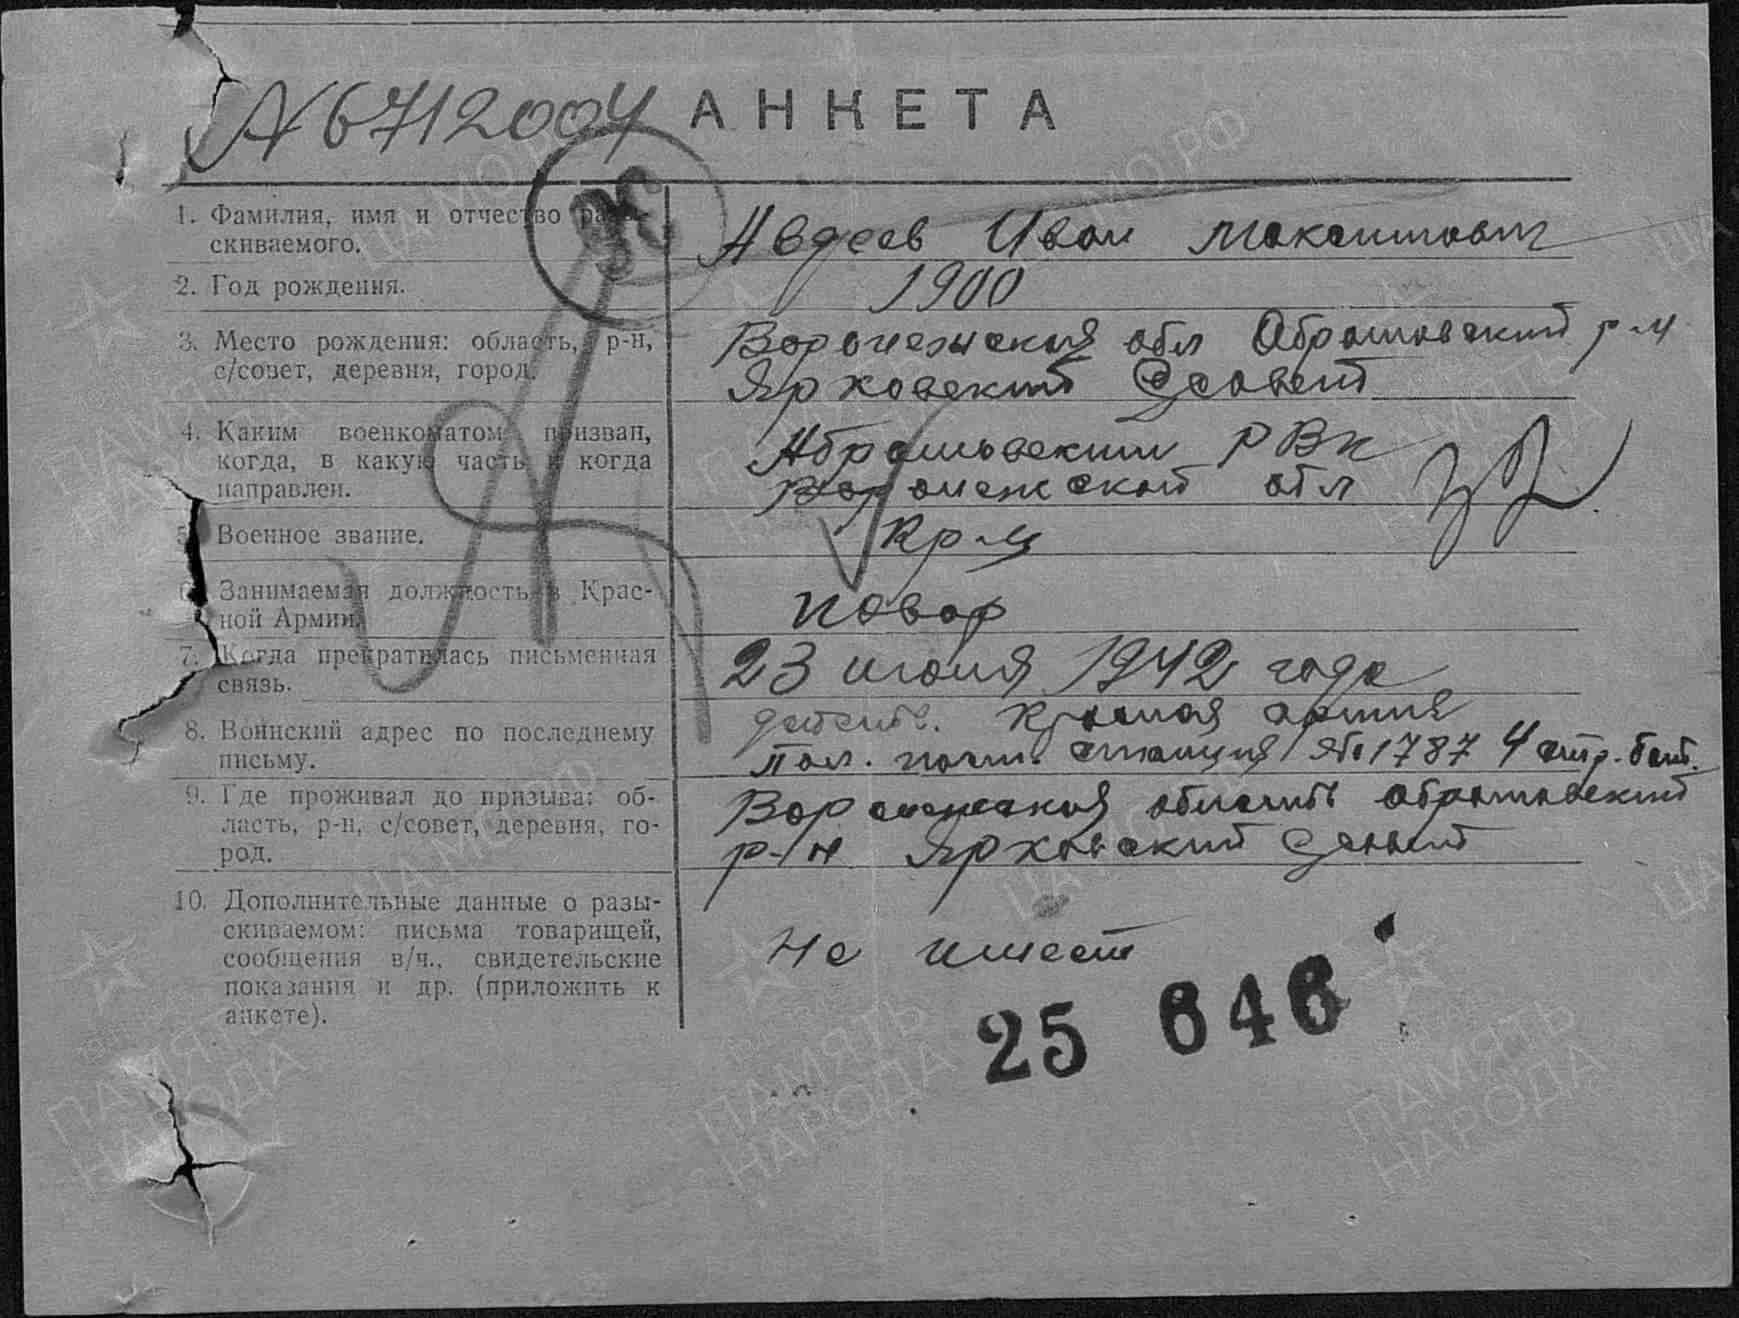 № 6712004 АНКЕТА
1. Фамилия, имя и отчество разы-
скиваемого.
Авдеев Иван Максимович
2. Год рождения.
1900
3. Место рождения: область, р-н,
с/совет, деревня, город.
Воронежская обл Абрамовский р-н
Ярковский Ссовет
4. Каким военкоматом призван,
когда, в какую часть и когда
направлен.
Абрамовским РВК
Воронежской обл
5. Военное звание.
Кр-ц
6. Занимаемая должность в Крас-
ной Армии.
повар
7. Когда прекратилась письменная
связь.
23 июня 1942 года
8. Воинский адрес по последнему
письму.
действ. Красная армия
пол. почт. станция №1787 4 стр. бат.
9. Где проживал до призыва: об-
ласть, р-н, с/совет, деревня, го-
род.
Воронежская область Абрамовский
р-н Ярковский Ссовет
10. Дополнительные данные о разы-
скиваемом: письма товарищей,
сообщения в/ч., свидетельские
показания и др. (приложить к
анкете).
Не имеет
25 646
ЦАМО.РФ
ПАМЯТЬ
НАРОДА